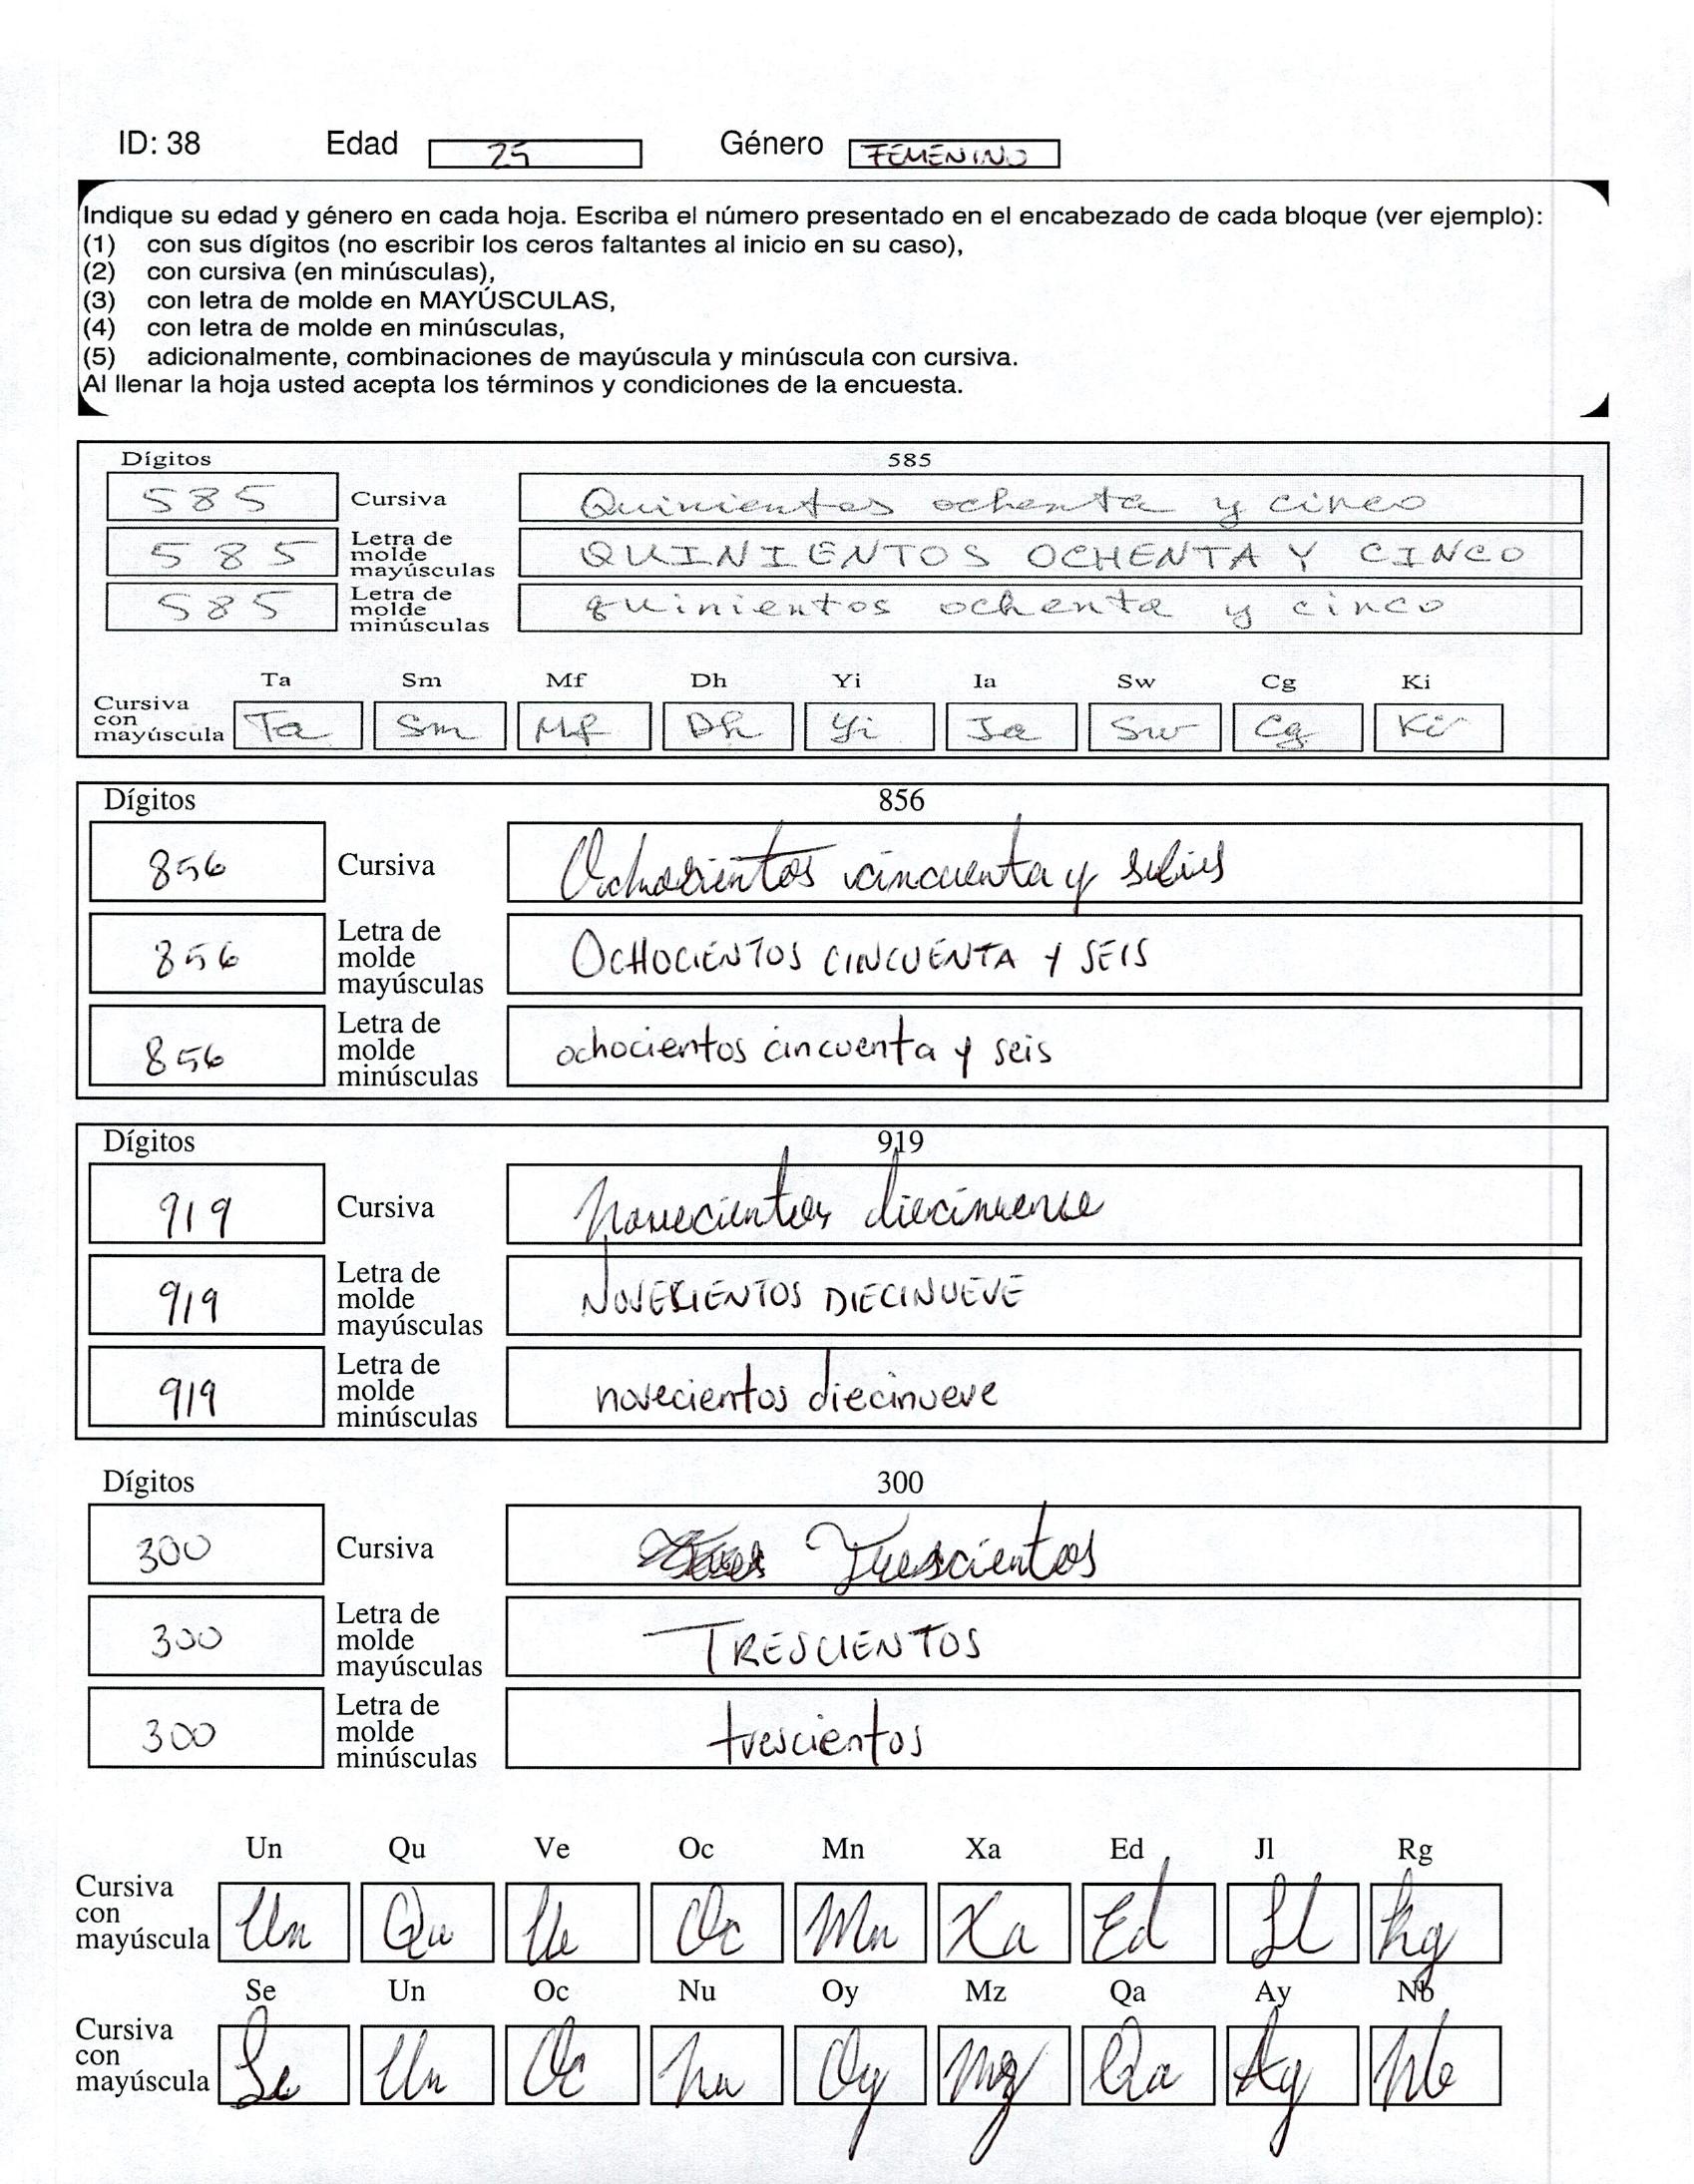 ID: 38 Edad 25 Género FEMENINO
Indique su edad y género en cada hoja. Escriba el número presentado en el encabezado de cada bloque (ver ejemplo):
(1) con sus dígitos (no escribir los ceros faltantes al inicio en su caso),
(2) con cursiva (en minúsculas),
(3) con letra de molde en MAYÚSCULAS,
(4) con letra de molde en minúsculas,
(5) adicionalmente, combinaciones de mayúscula y minúscula con cursiva.
Al llenar la hoja usted acepta los términos y condiciones de la encuesta.
Dígitos 585
585 Cursiva Quinientos ochenta y cinco
585 Letra de molde mayúsculas QUINIENTOS OCHENTA Y CINCO
585 Letra de molde minúsculas quinientos ochenta y cinco
Ta Sm Mf Dh Yi Ia Sw Cg Ki
Cursiva con mayúscula Ta Sm Mf Dh Yi Ia Sw Cg Ki
Dígitos 856
856 Cursiva Ochocientos cincuenta y
856 Letra de molde mayúsculas OCHOCIENTOS CINCUENTA Y SEIS
856 Letra de molde minúsculas ochocientos cincuenta y seis
Dígitos 919
919 Cursiva Novecientos diecinueve
919 Letra de molde mayúsculas NOVECIENTOS DIECINUEVE
919 Letra de molde minúsculas novecientos diecinueve
Dígitos 300
300 Cursiva Trescientos
300 Letra de molde mayúsculas TRESCIENTOS
300 Letra de molde minúsculas trescientos
Un Qu Ve Oc Mn Xa Ed Jl Rg
Cursiva con mayúscula Un Qu Ve Oc Mn Xa Ed Jl Rg
Se Un Oc Nu Oy Mz Qa Ay Nb
Cursiva con mayúscula Se Un Oc Nu Oy Mz Qa Ay Nb